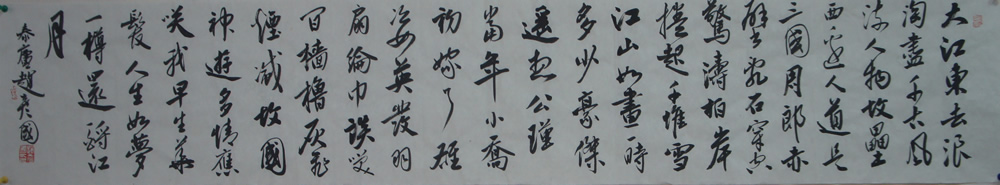 大江東去浪
淘盡千古風
流人物故壘
西邊人道是
三國周郎赤
壁亂石穿空
驚濤拍岸
捲起千堆雪
江山如畫一時
多少豪傑
遥想公瑾
當年小喬
初嫁了雄
姿英發羽
扇綸巾談笑
間檣櫓灰飛
煙滅故國
神遊多情應
笑我早生華
髮人生如夢
一樽還酹江
月